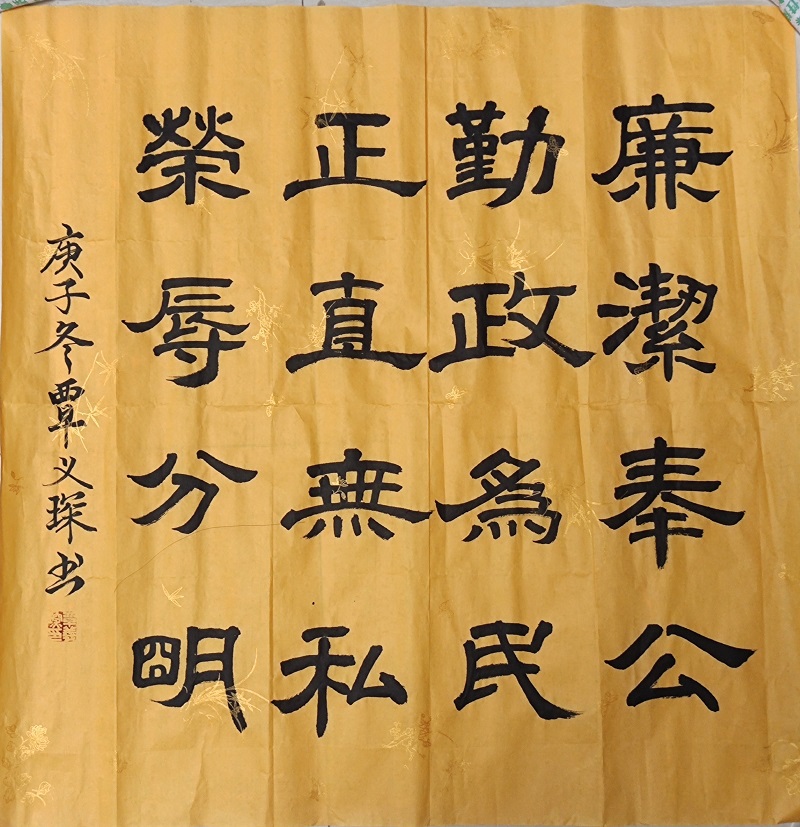 廉潔奉公
勤政為民
正直無私
榮辱分明
庚子冬覃义琛书